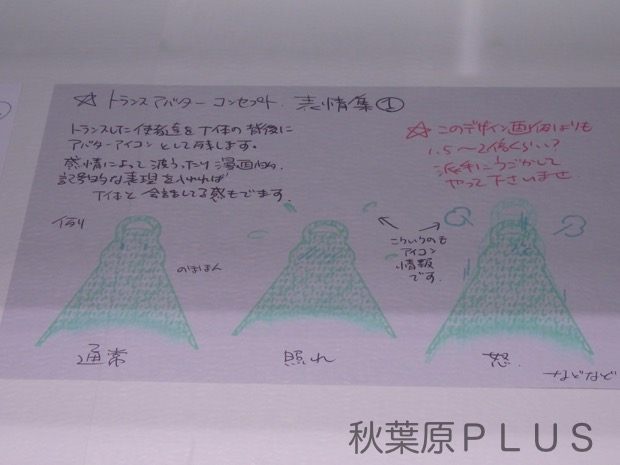 ☆ トランスアバターコンセプト 表情集①
トランスした使者達をナイ体の背後に
アバターアイコンとして付ます。
感情によって波うったり漫画的な
記号的な表現を入れれば
会話してる感もでます
☆このデザイン画よりも
1.5〜2倍くらい?
派手にうごかして
やって下さいませ
例)
のほほん
こういうのも
アイコン
情報
です。
通常
照れ
怒
などなど
秋葉原PLUS